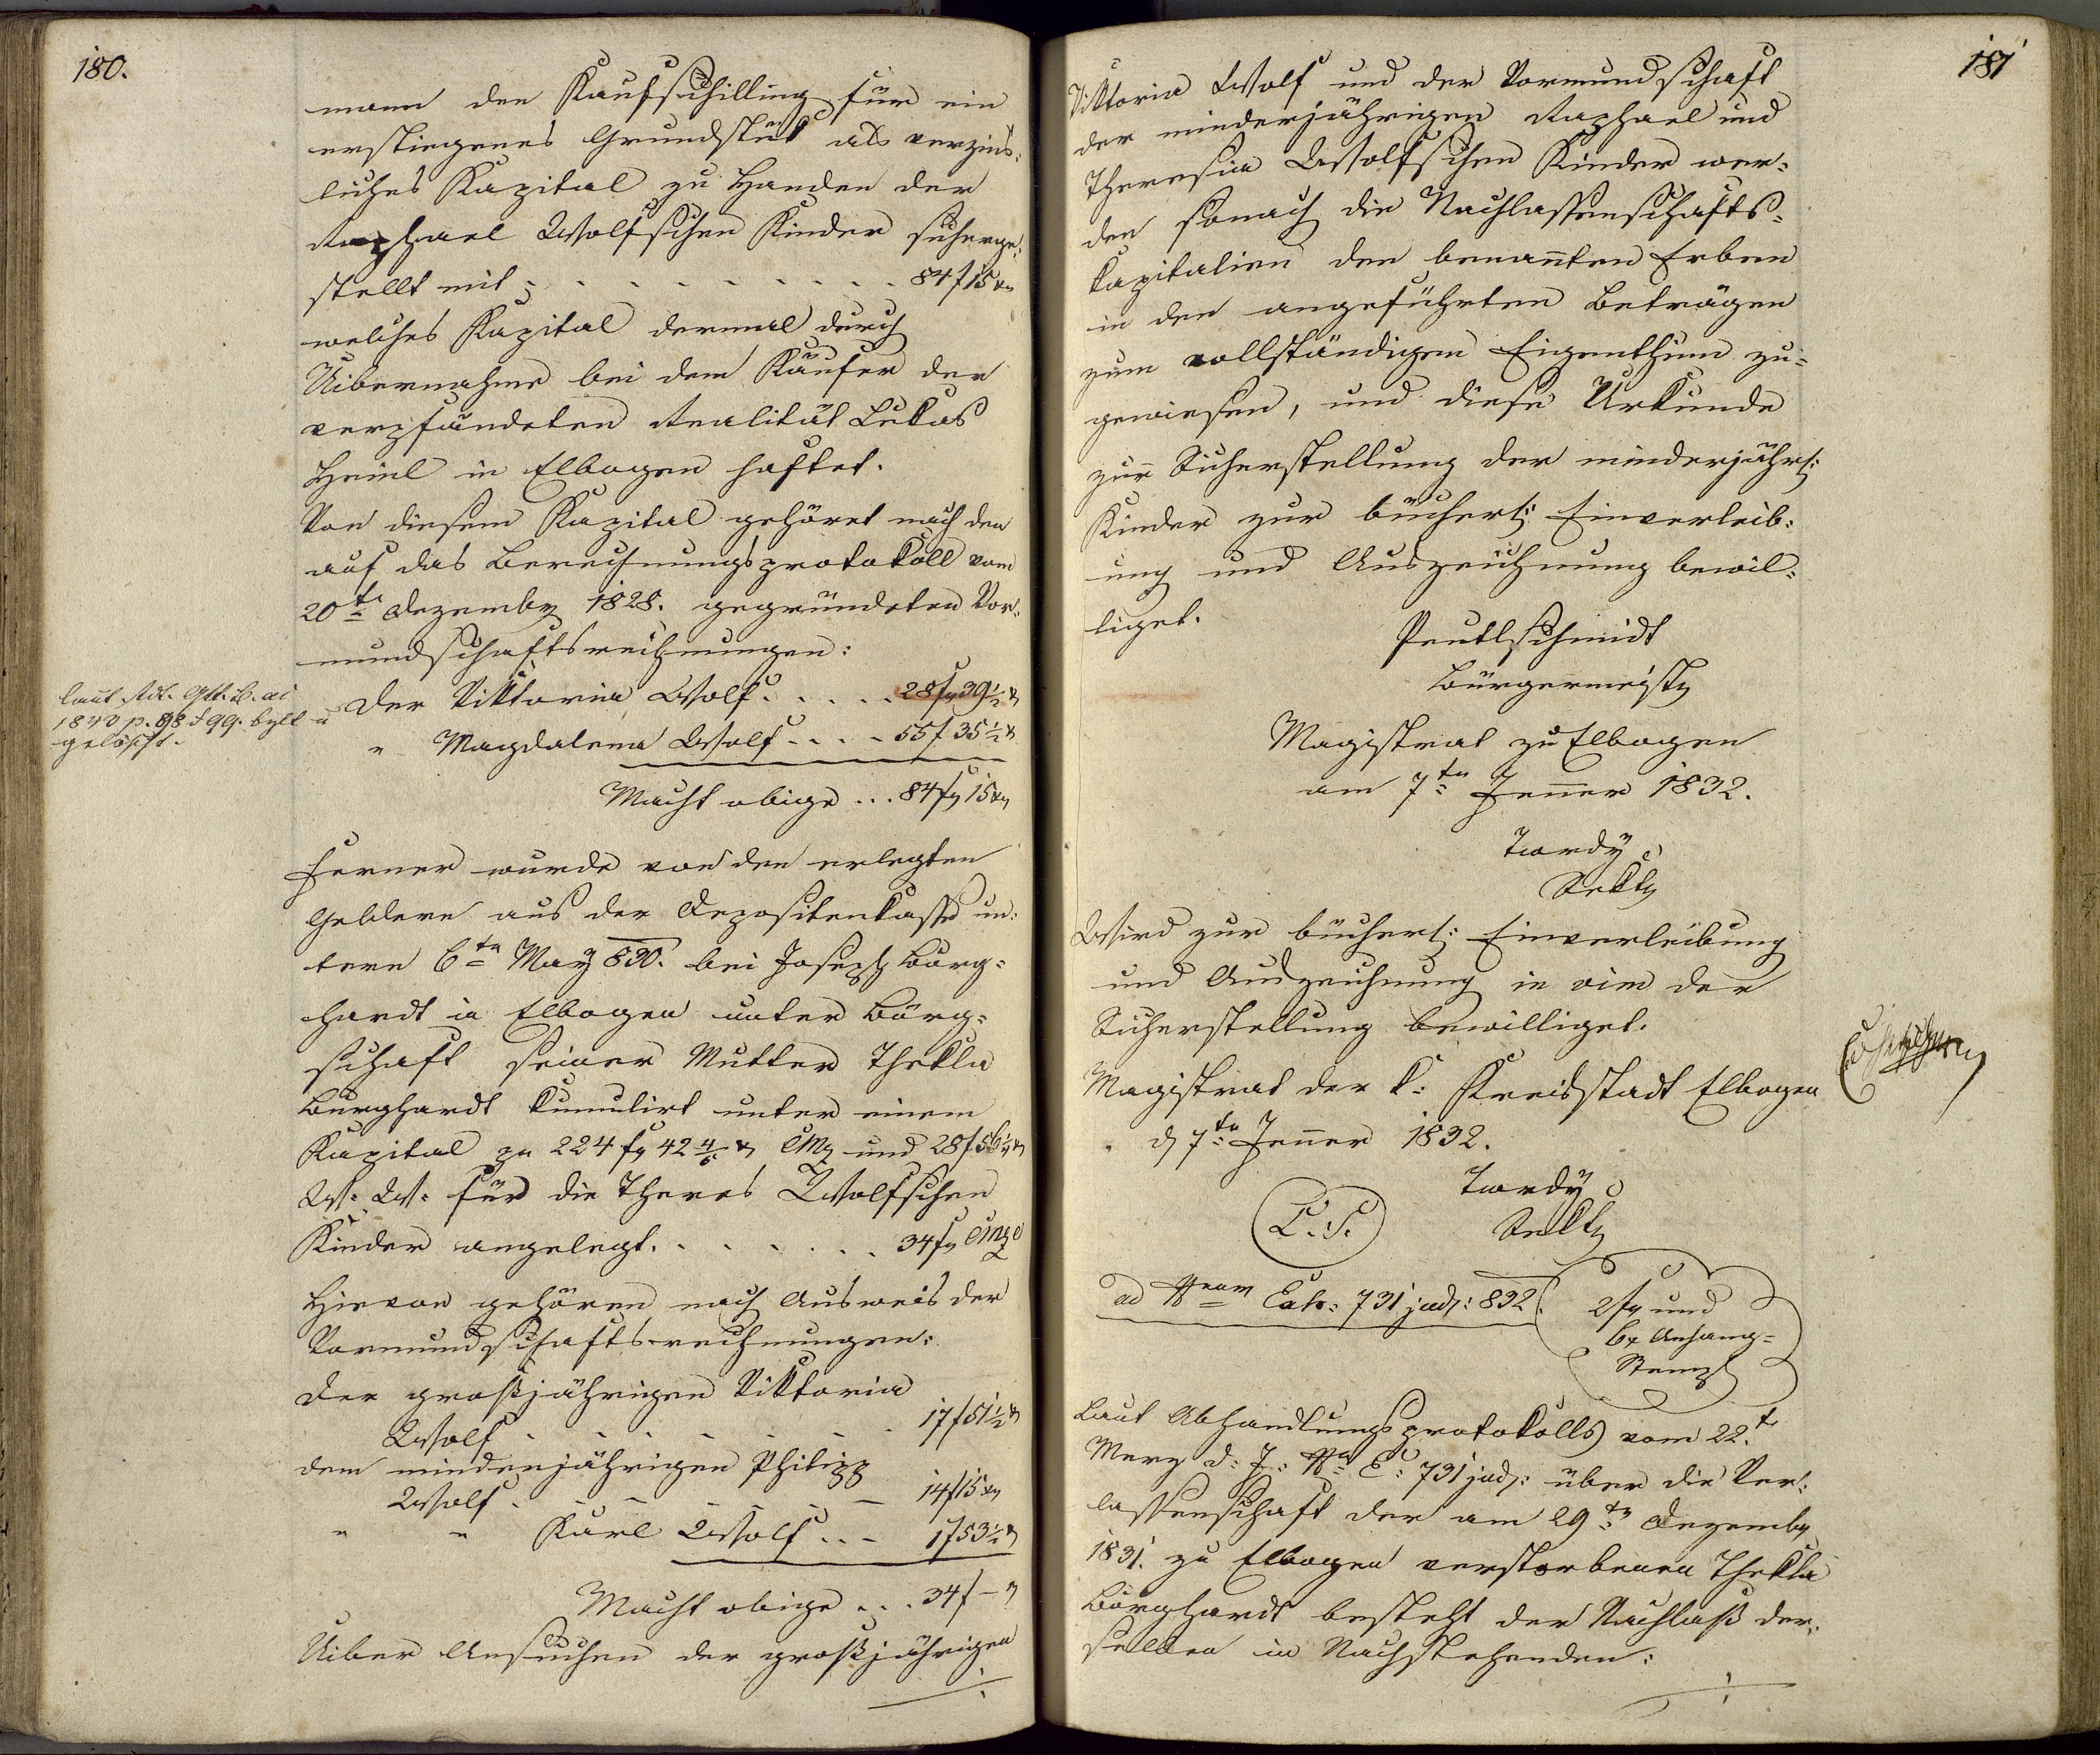 180.
mann den Kaufschilling für ein
erstiegenes Grundstük als verzins-
liches Kapital zu Handen der
Raphael Wolfschen Kinder sicherge-
stellt mit . . . . . . . . 84 f 15 xr
welches Kapital dermal durch
Uibernahme bei dem Käufer der
verpfändeten Realität Lukas
Heinl in Elbogen haftet.
Von diesem Kapital gehöret nach den
auf das Berechnungsprotokoll vom
20te Dezember 1828. gegründeten Vor-
mundschaftsrechnungen:
der Viktoria Wolf . . . . . 28 fr 39 1/2 x
" Magdalena Wolf . . . . 55 f 35 1/2 x
Macht obige ... 84 fr 15 xr
laut
1840 p. 98 & 99.
gelöscht.
Ferner wurde von den erlegten
Geldern aus der Depositenkasse un-
term 6ten May 830. bei Joseph Burg-
hardt in Elbogen unter Bürg-
schaft seiner Mutter Thekla
Burghardt kumulirt unter einem
Kapital zu 224 fr 42 4/5 x CMz und 28 f 56 1/4 x
W. W. für die Theres Wolfschen
Kinder angelegt. . . . . . . 34 fr CMze
Hievon gehören nach Ausweis der
Vormundschaftsrechnungen:
der großjährigen Viktoria
Wolf . . . . . . 17 f 51 1/2 x
dem minderjährigen Philipp
Wolf . . . . . 14 f 15 xr
" " Karl Wolf . . . 1 f 53 1/2 x
Macht obige . . . 34 f —
Uiber Ansuchen der großjährigen
181
Viktoria Wolf und der Vormundschaft
der minderjährigen Raphael und
Theresia Wolfschen Kinder wer-
den sonach die Nachlassenschafts-
kapitalien den benannten Erben
in den angeführten Beträgen
zum vollständigen Eigenthum zu-
gewiesen, und diese Urkunde
zur Sicherstellung der minderjähr:
Kinder zur bücherl: Einverleib-
ung und Auszeichnung bewil-
liget.
Peutlschmidt
Bürgermeister
Magistrat zu Elbogen
am 7ten Jenner 1832.
Twrdy
Sektr
Wird zur bücherl: Einverleibung
und Auszeichnung in vim der
Sicherstellung bewilliget.
Magistrat der k: Kreisstadt Elbogen
d 7ten Jenner 1832.
Twrdy
L. S. Sektr
ad Nrum Exh: 731 jud: 832.
2 fr und
6 x Anhang-
Stempl
Laut Abhandlungsprotokolls vom 22.t
Merz d: J: No E: 731 jud: über die Ver-
lassenschaft der am 29ten Dezember
1831. zu Elbogen verstorbenen Thekla
Burghardt besteht der Nachlaß der-
selben in Nachstehenden: